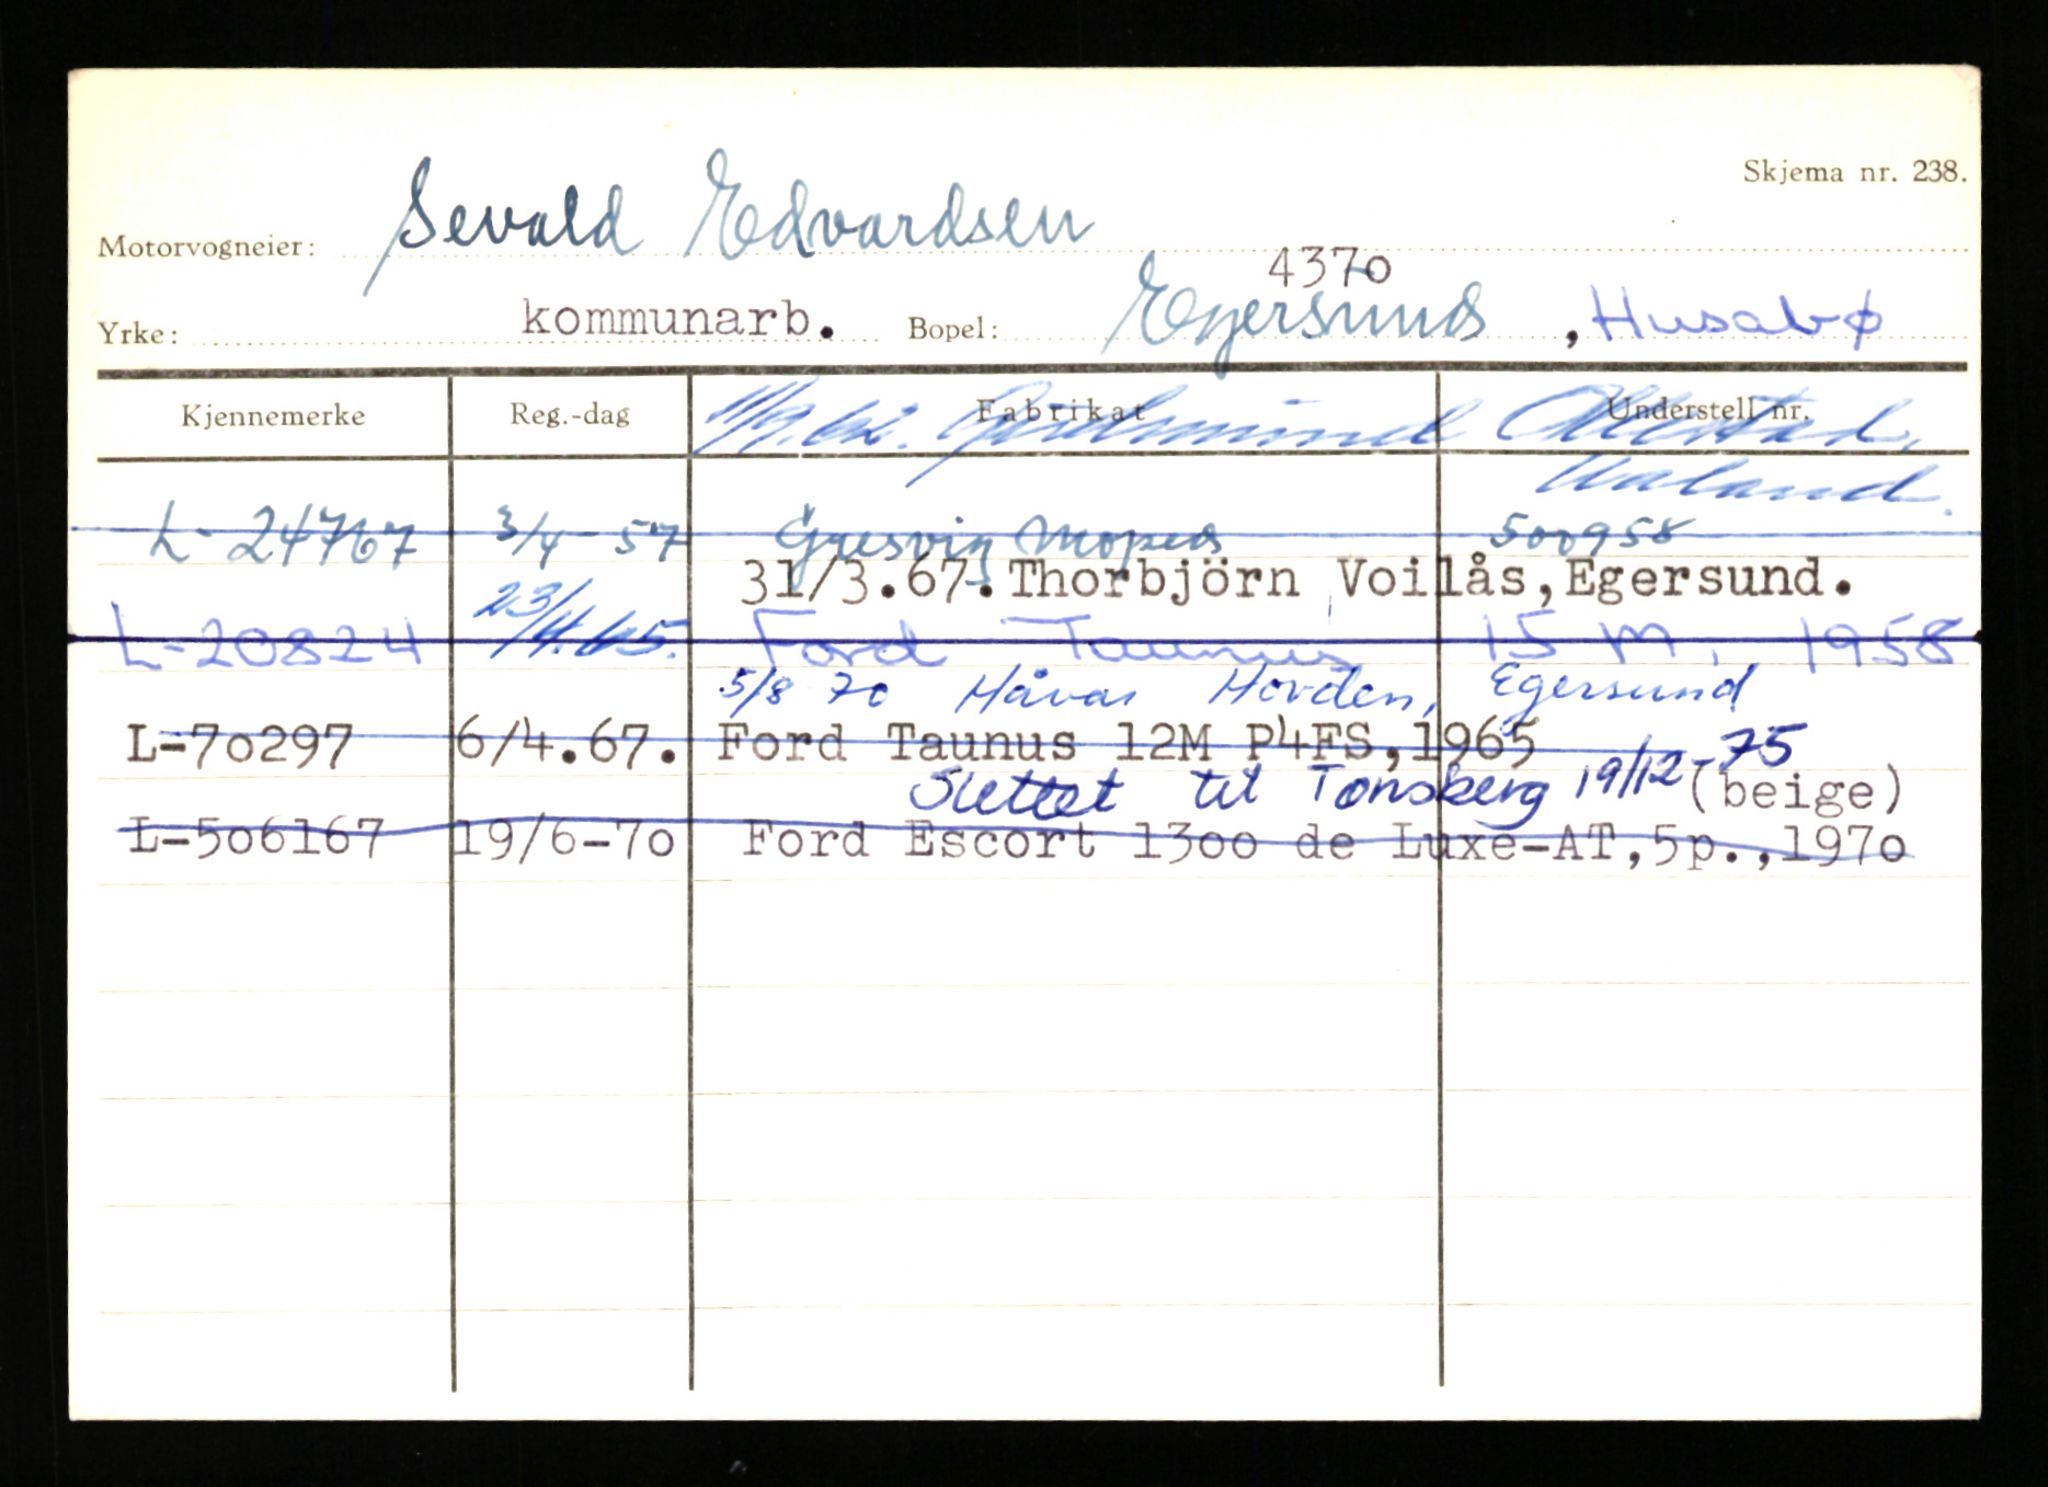 Skjema nr. 238.
Motorvogneier: Sevald Edvardsen
4370
Yrke: kommunarb. Bopel: Egersund , Husabø
Kjennemerke Reg.-dag Fabrikat Understell nr.
Ualand.
L-24767 3/4-57 Gresvig Moped 500958
31/3.67. Thorbjörn Voilås, Egersund.
L-20824 23/4.65. Ford Taunus 15 M, 1958
5/8 70 Håvar Hovden, Egersund
L-70297 6/4.67. Ford Taunus 12M P4FS, 1965
Slettet til Tønsberg 19/12-75 (beige)
L-506167 19/6-70 Ford Escort 1300 de Luxe-AT, 5p., 1970